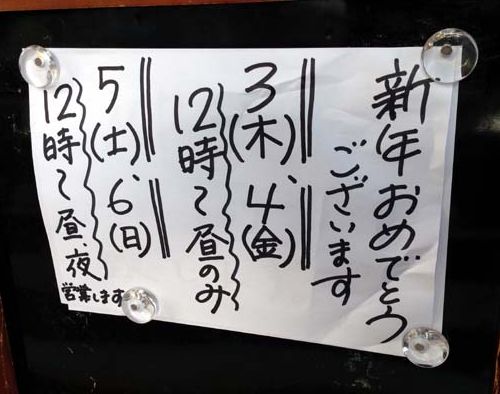 新年おめでとう
ございます
3(木)、4(金)
12時〜昼のみ
5(土)、6(日)
12時〜昼、夜
営業します